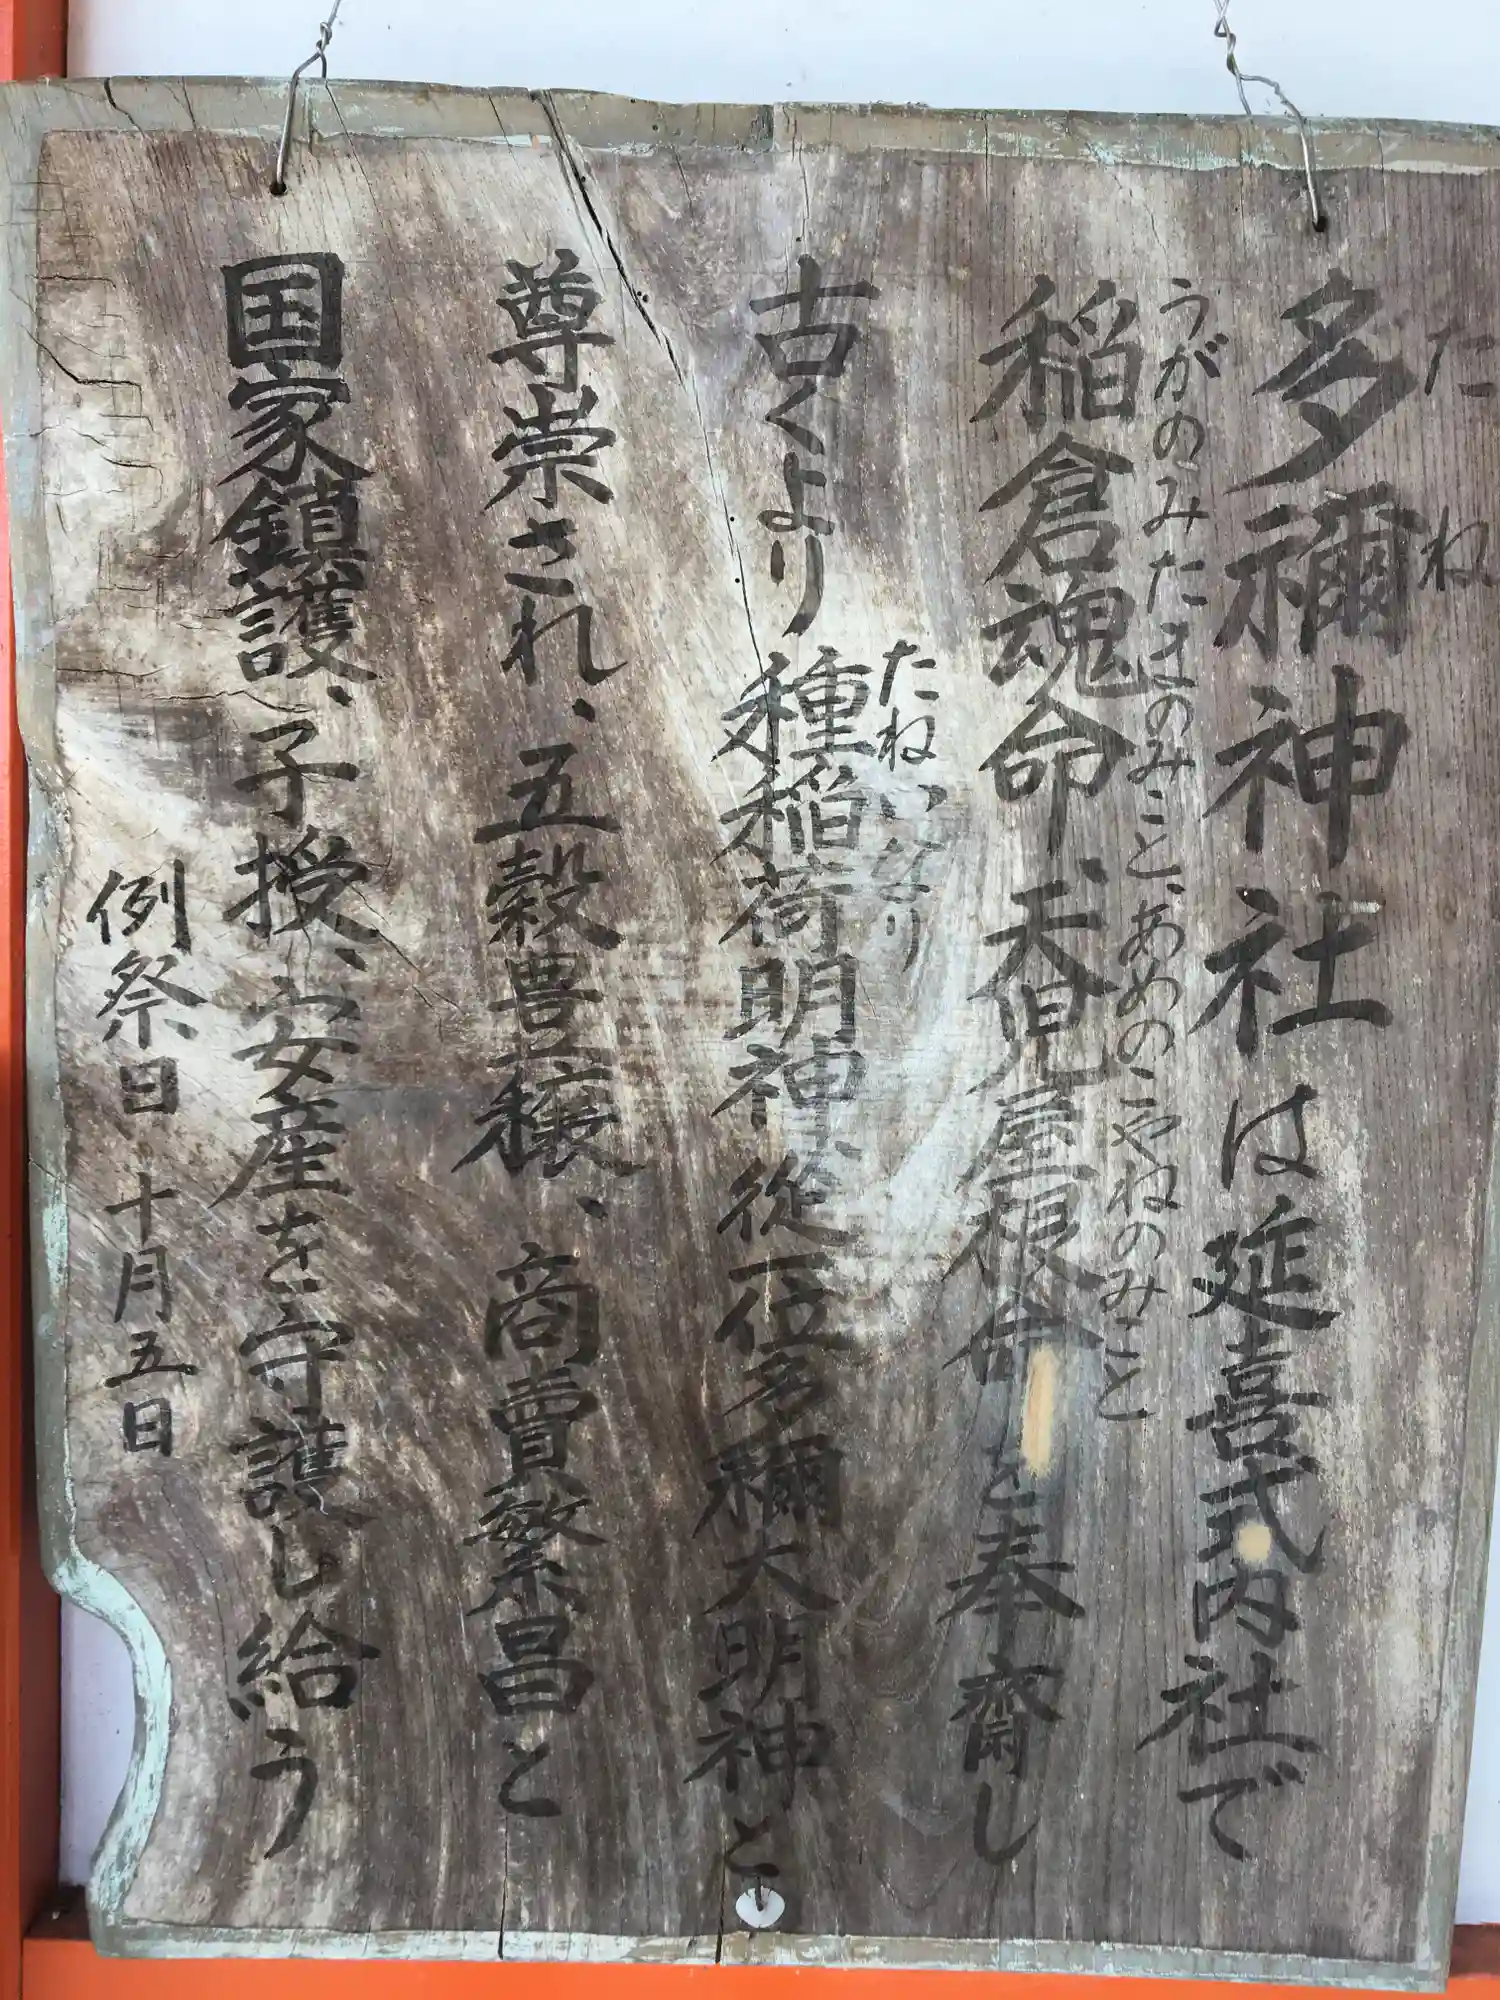 たね
多禰神社は延喜式内社で
うがのみたまのみこと、あめのこやねのみこと
稲倉魂命、天児屋根命を奉齋し
たねいなり
古くより種稲荷明神、従一位多禰大明神と
尊崇され、五穀豊穣、商賣繁昌と
国家鎮護、子授、安産を守護し給う
例祭日十月五日